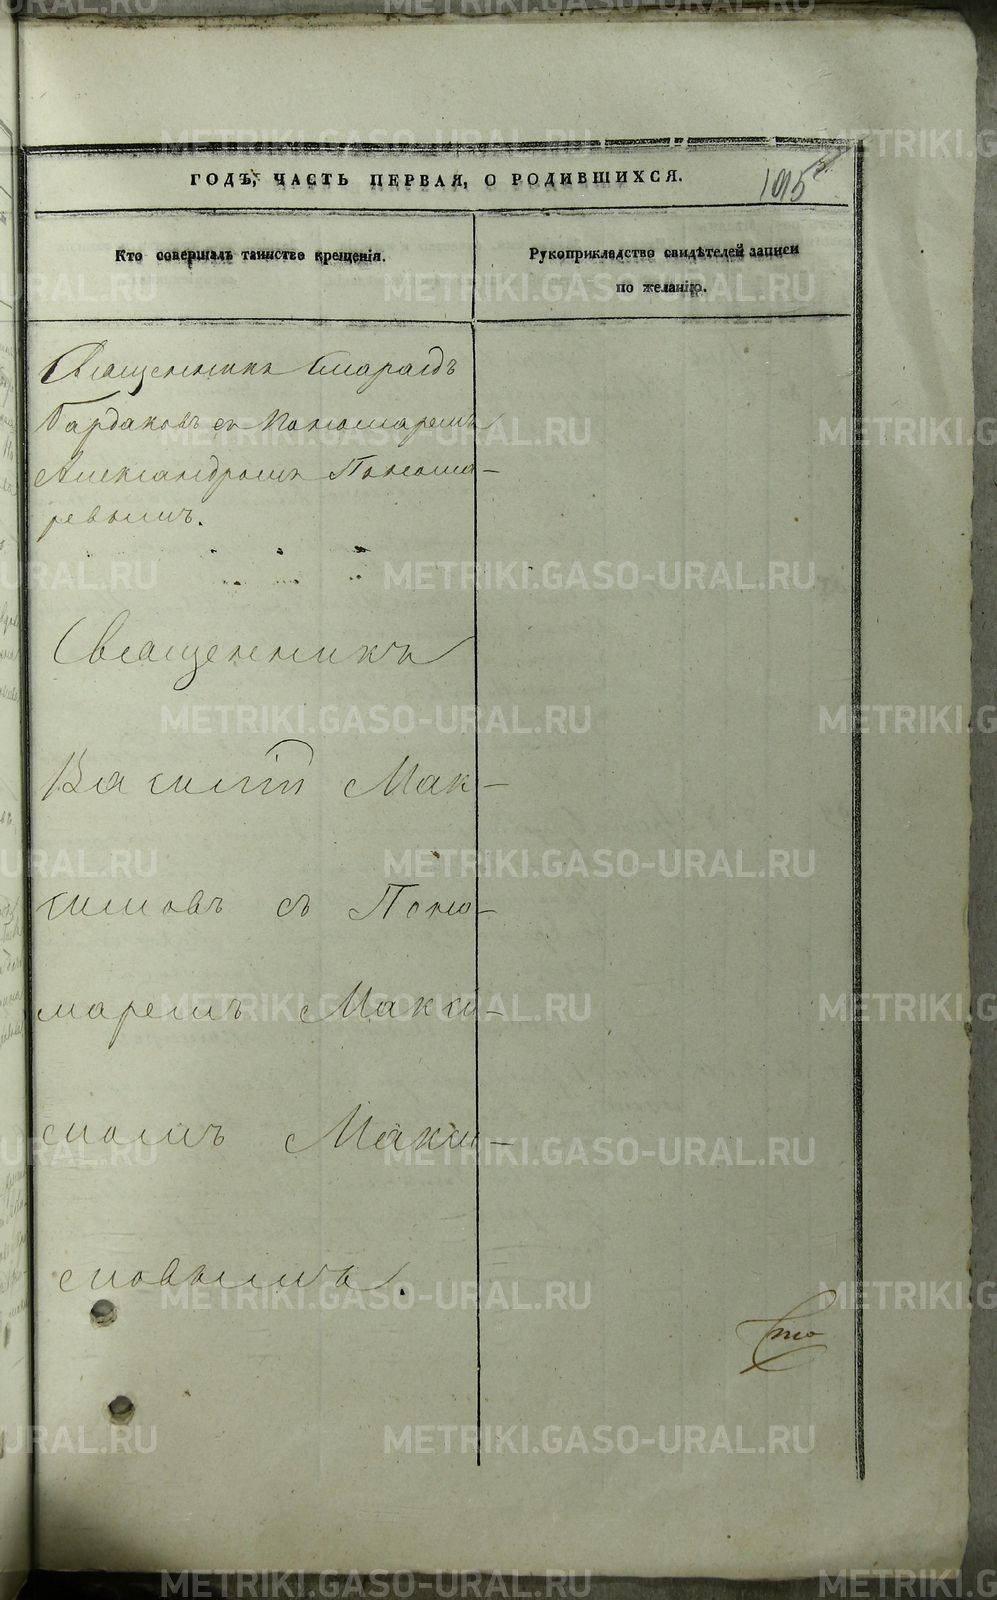 ГОДЪ, ЧАСТЬ ПЕРВАЯ, О РОДИВШИХСЯ.
Кто совершалъ таинство крещенія.
Рукоприкладство свидѣтелей записи
по желанію.
Священникъ Смарагдъ
Бардаковъ съ Пономаремъ
Александромъ Понома-
ревымъ.
Священникъ
Василій Мак-
симовъ съ Поно-
маремъ Макси-
момъ Макси-
мовымъ.
сто
METRIKI.GASO-URAL.RU